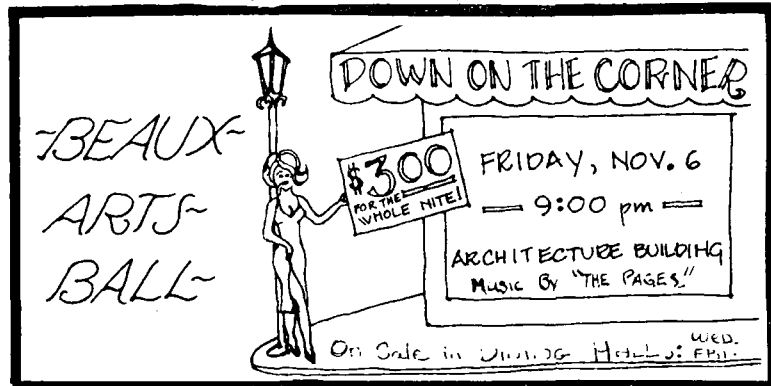 ~BEAUX~
ARTS~
BALL~
DOWN ON THE CORNER
$3.00
FOR THE
WHOLE NITE!
FRIDAY, NOV. 6
9:00 pm
ARCHITECTURE BUILDING
MUSIC BY "THE PAGES"
On Sale in Dining Halls: WED.
FRI.